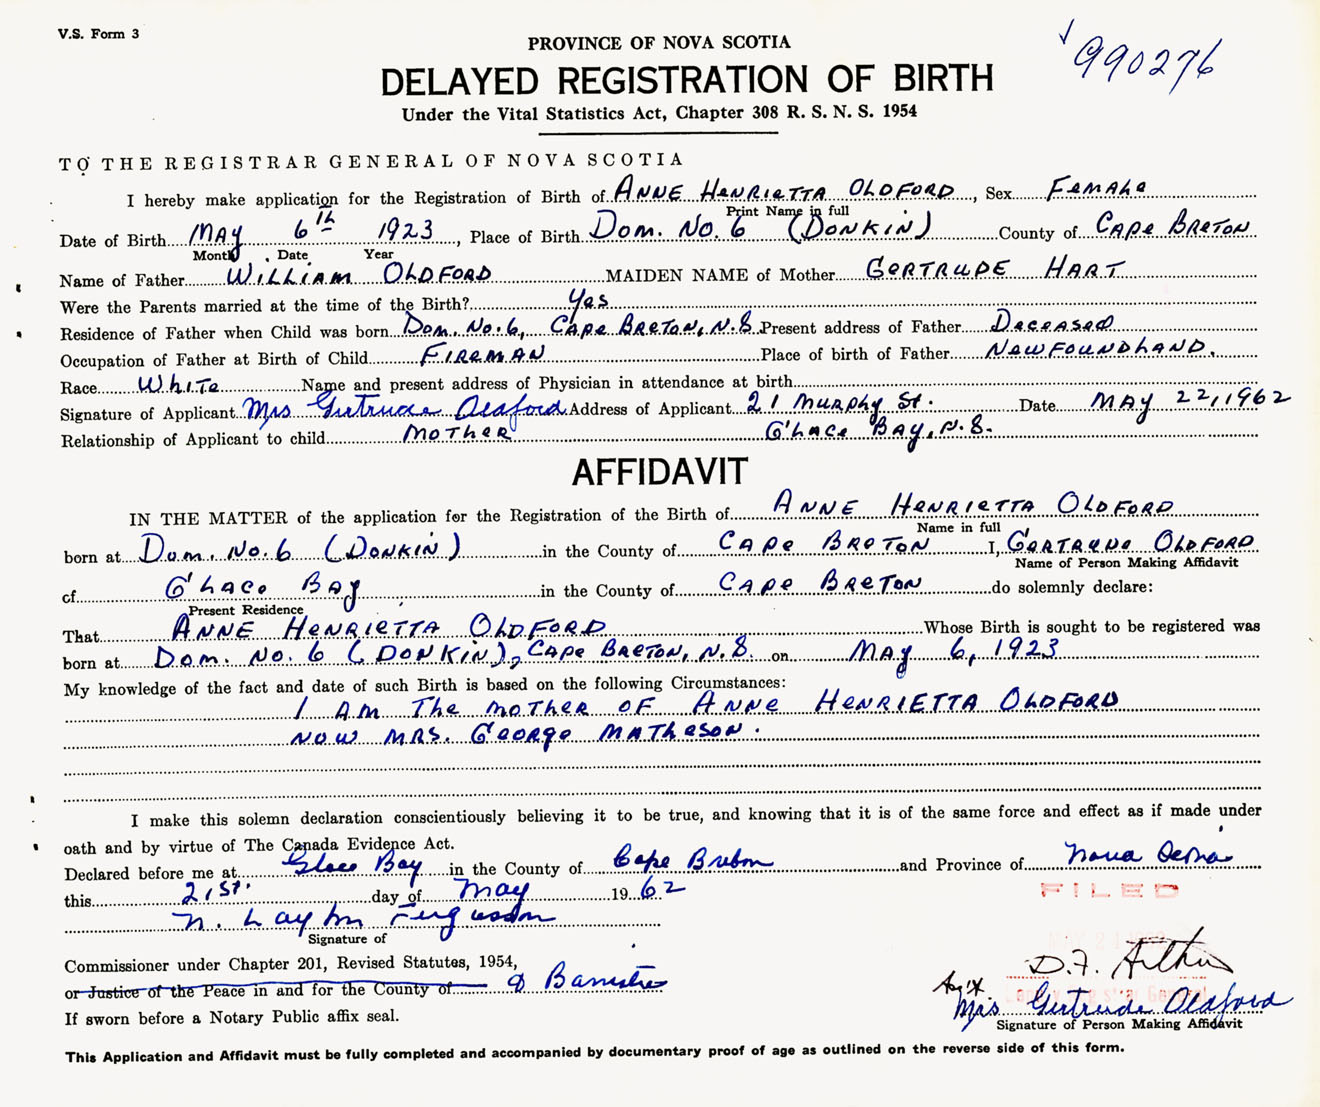 V.S. Form 3
990276
PROVINCE OF NOVA SCOTIA
DELAYED REGISTRATION OF BIRTH
Under the Vital Statistics Act, Chapter 308 R. S. N. S. 1954
TO THE REGISTRAR GENERAL OF NOVA SCOTIA
I hereby make application for the Registration of Birth of ANNE HENRIETTA OLDFORD, Sex FEMALE
Print Name in full
Date of Birth MAY 6th 1923, Place of Birth DOM. NO. 6 (DONKIN) County of CAPE BRETON
Month, Date Year
Name of Father WILLIAM OLDFORD MAIDEN NAME of Mother GERTRUDE HART
Were the Parents married at the time of the Birth? Yes
Residence of Father when Child was born DOM. NO. 6, CAPE BRETON, N.S. Present address of Father DECEASED
Occupation of Father at Birth of Child FIREMAN Place of birth of Father NEWFOUNDLAND.
Race WHITE Name and present address of Physician in attendance at birth
Signature of Applicant Mrs Gertrude Oldford Address of Applicant 21 MURPHY ST. Date MAY 22, 1962
Relationship of Applicant to child MOTHER G'LACE BAY, N.S.
AFFIDAVIT
IN THE MATTER of the application for the Registration of the Birth of ANNE HENRIETTA OLDFORD
Name in full
born at DOM. NO. 6 (DONKIN) in the County of CAPE BRETON I, GERTRUDE OLDFORD
Name of Person Making Affidavit
of G'LACE BAY in the County of CAPE BRETON do solemnly declare:
Present Residence
That ANNE HENRIETTA OLDFORD Whose Birth is sought to be registered was
born at DOM. NO. 6 (DONKIN), CAPE BRETON, N.S. on MAY 6, 1923
My knowledge of the fact and date of such Birth is based on the following Circumstances:
I AM THE MOTHER OF ANNE HENRIETTA OLDFORD
NOW MRS. GEORGE MATHESON.
I make this solemn declaration conscientiously believing it to be true, and knowing that it is of the same force and effect as if made under
oath and by virtue of The Canada Evidence Act.
Declared before me at Glace Bay in the County of Cape Breton and Province of Nova Scotia
this 21st. day of May 1962
FILED
N. Layton Fergusson
Signature of
Commissioner under Chapter 201, Revised Statutes, 1954,
D.F.
or Justice of the Peace in and for the County of a Barrister
Mrs Gertrude Oldford
If sworn before a Notary Public affix seal.
Signature of Person Making Affidavit
This Application and Affidavit must be fully completed and accompanied by documentary proof of age as outlined on the reverse side of this form.